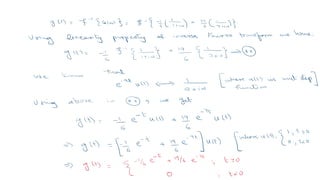 g(t) = F⁻¹{G(ω)} = F⁻¹{ -1/6 (1/(1+jω)) + 19/6 (1/(7+jω)) }
Using linearity property of inverse Fourier transform we have
g(t) = -1/6 F⁻¹{ 1/(1+jω) } + 19/6 F⁻¹{ 1/(7+jω) } →
we know that
e^{-at} u(t) ⟷ 1/(a+jω) [where u(t) is unit step function]
Using above in , we get
g(t) = -1/6 e^{-t} u(t) + 19/6 e^{-7t} u(t)
⇒ g(t) = [ -1/6 e^{-t} + 19/6 e^{-7t} ] u(t) [where u(t) = { 1, t>0
0, t<0
⇒ g(t) = { -1/6 e^{-t} + 19/6 e^{-7t} ; t>0
0 ; t<0